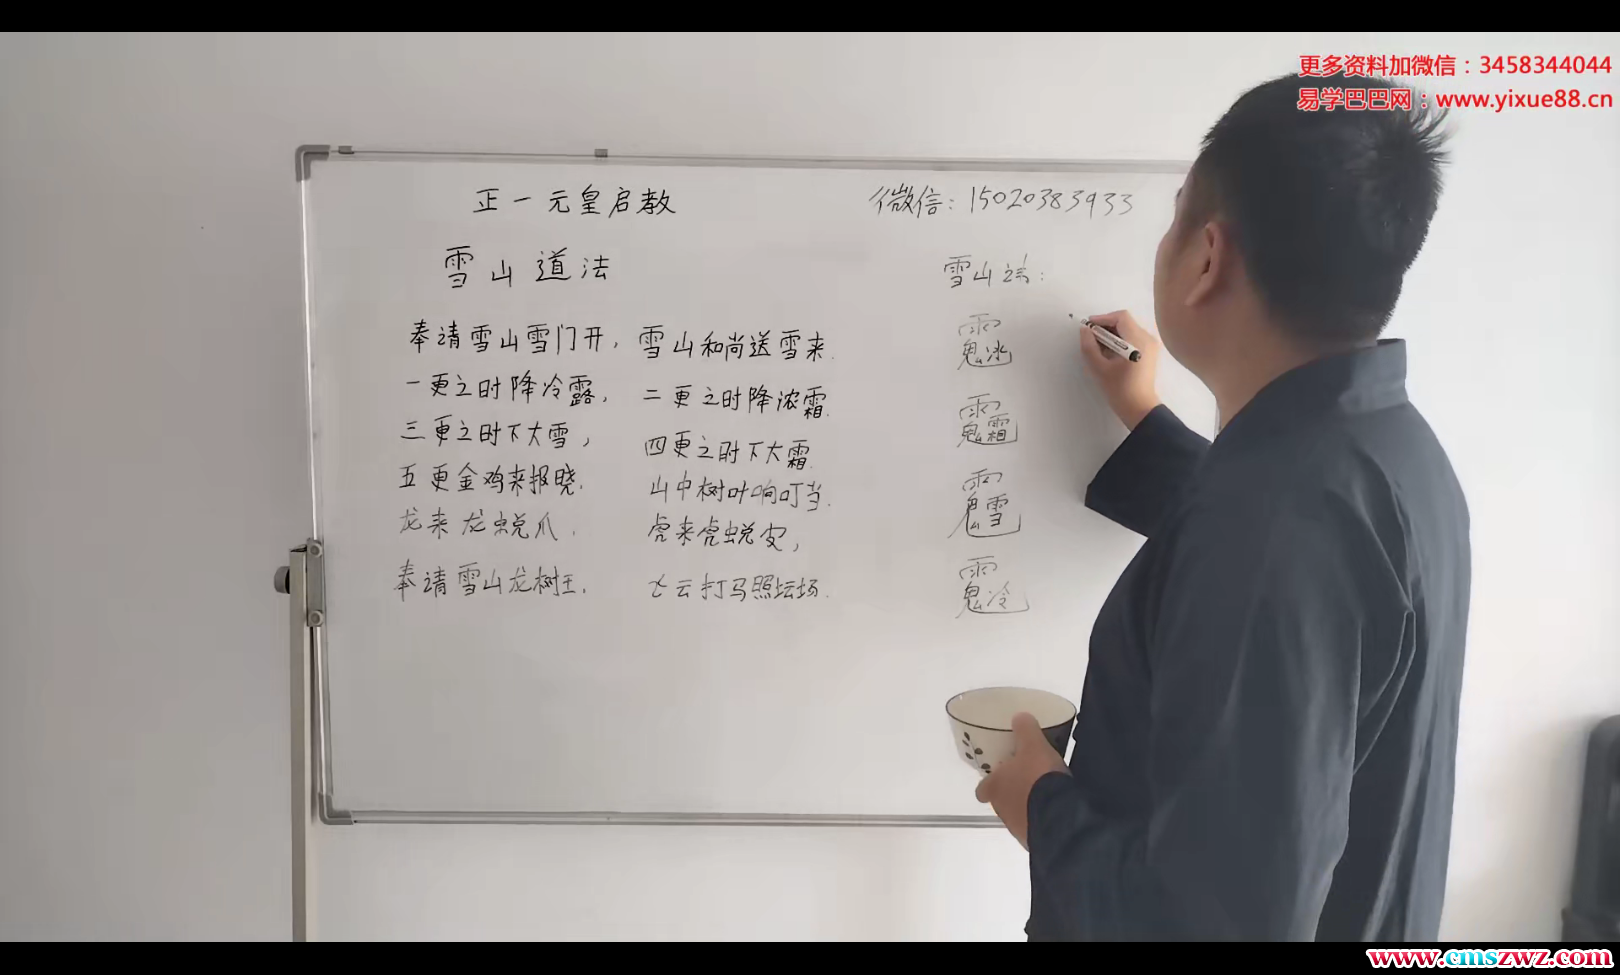 更多资料加微信：3458344044
易学巴巴网：www.yixue88.cn
正一元皇启教
微信：15020383933
雪山道法
雪山法：
奉请雪山雪门开，雪山和尚送雪来.
一更之时降冷露，二更之时降浓霜.
三更之时下大雪，四更之时下大霜.
五更金鸡来报晓.山中树叶响叮当.
龙来龙蜕爪.虎来虎蜕皮，
奉请雪山龙树王.弋云打马照坛场.
www.cmszwz.com